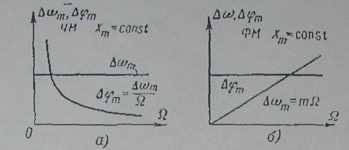 Δω̅ₘ, Δφₘ
ЧМ Xₘ=const
Δωₘ
Δφₘ = Δωₘ/Ω
0
Ω
а)
Δω, Δφₘ
ФМ Xₘ=const
Δφₘ
Δωₘ=mΩ
Ω
б)